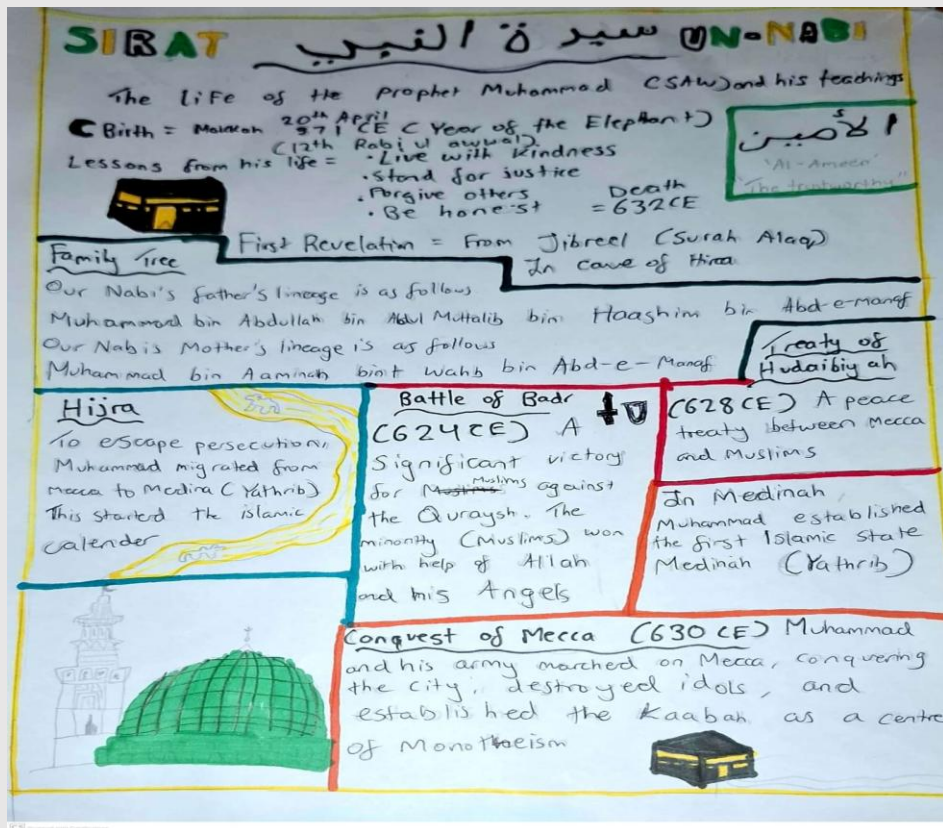 SIRAT سيرة النبي UN-NABI
The life of the Prophet Muhammad (SAW) and his teachings
Birth = Makkah 20th April 571 CE (Year of the Elephant)
(12th Rabi ul awwal)
الأمين
'Al-Ameen'
"The trustworthy"
Lessons from his life = • Live with kindness
• Stand for justice
• Forgive others
• Be honest
Death
= 632CE
First Revelation = From Jibreel (Surah Alaq)
In cave of Hira
Family Tree
Our Nabi's father's lineage is as follows
Muhammad bin Abdullah bin Abdul Muttalib bin Haashim bin Abd-e-Manaf
Our Nabis Mother's lineage is as follows
Muhammad bin Aaminah bint Wahb bin Abd-e-Manaf
Treaty of
Hudaibiyah
(628CE) A peace
treaty between Mecca
and Muslims
Hijra
To escape persecution,
Muhammad migrated from
mecca to Medina (Yathrib)
This started the islamic
calender
Battle of Badr
(624CE) A
Significant victory
for Muslims against
the Quraysh. The
minority (Muslims) won
with help of Allah
and his Angels
In Medinah
Muhammad established
the first Islamic state
Medinah (Yathrib)
Conquest of Mecca (630 CE) Muhammad
and his army marched on Mecca, conquering
the city, destroyed idols, and
established the Kaabah as a centre
of Monotheism